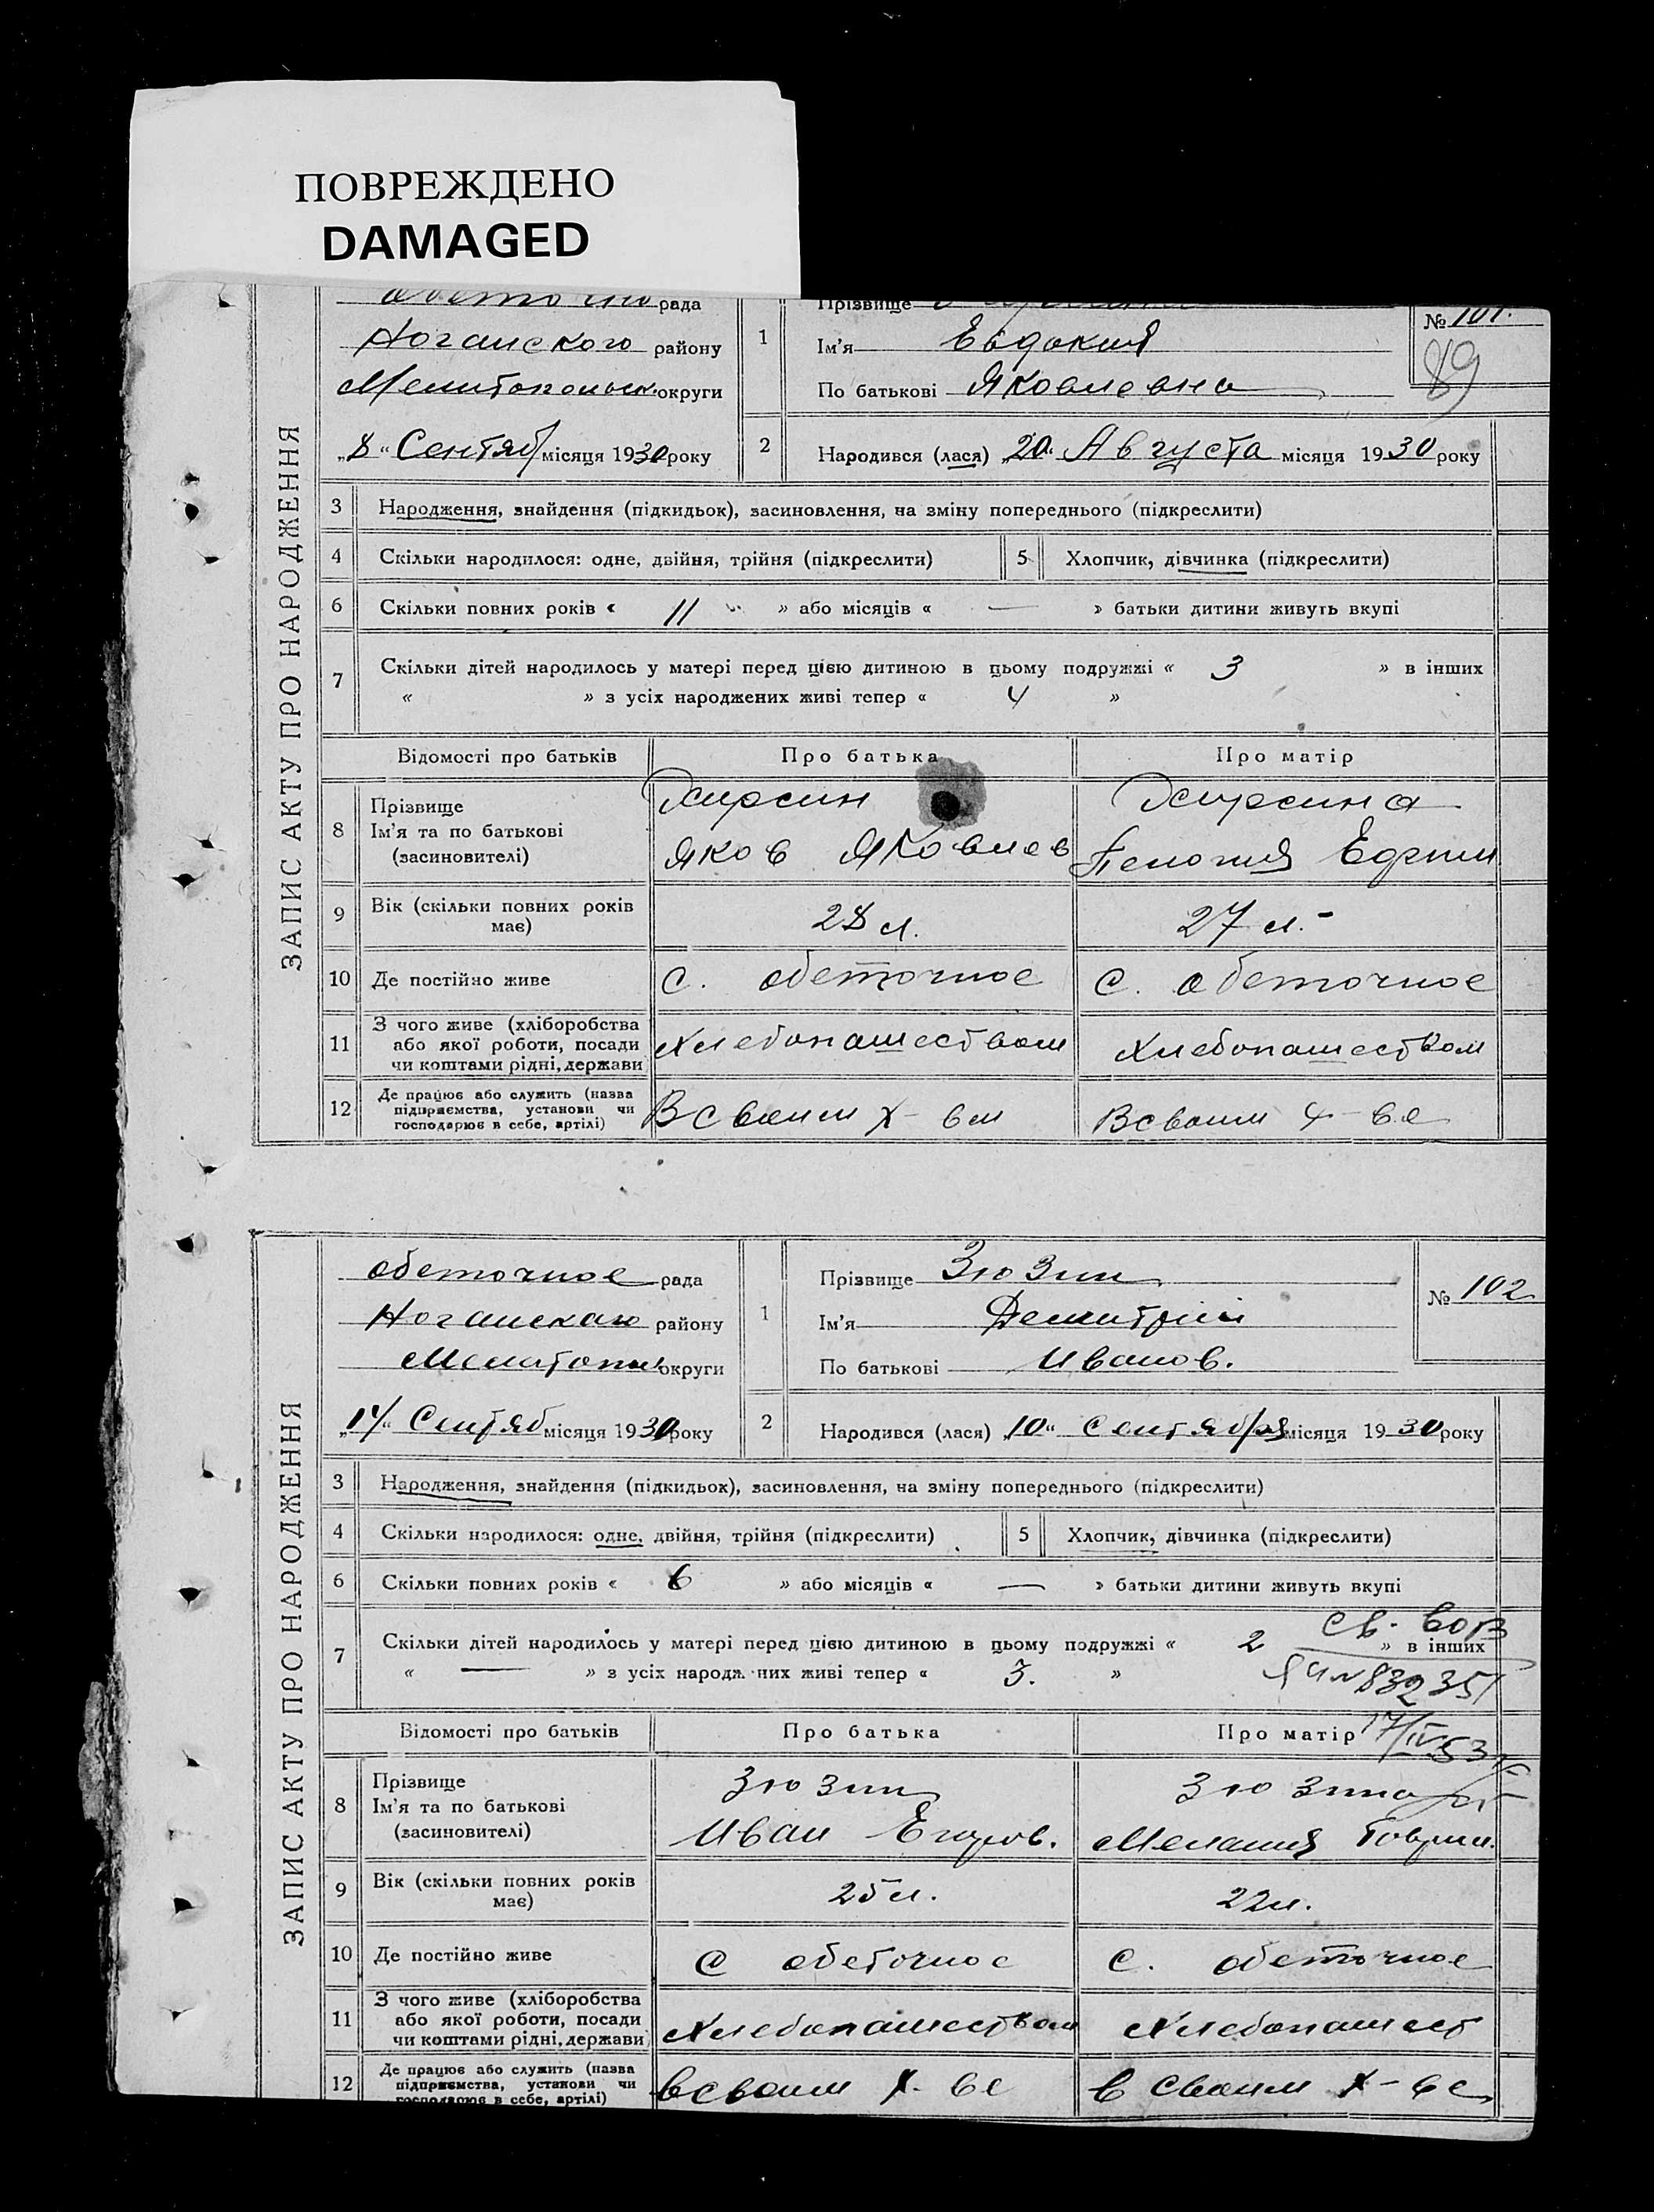 ПОВРЕЖДЕНО
DAMAGED
ЗАПИС АКТУ ПРО НАРОДЖЕННЯ
рада
Ногайского району
округи
„8“ Сентяб місяця 1930 року
1
Прізвище
Ім'я Евдокия
По батькові Яковлевна
№ 101.
89
2
Народився (лася) „20“ Августа місяця 1930 року
3 Народження, знайдення (підкидьок), засиновлення, на зміну попереднього (підкреслити)
4 Скільки народилося: одне, двійня, трійня (підкреслити) 5 Хлопчик, дівчинка (підкреслити)
6 Скільки повних років « 11 » або місяців « — » батьки дитини живуть вкупі
7 Скільки дітей народилось у матері перед цією дитиною в цьому подружжі « 3 » в інших
« » з усіх народжених живі тепер « 4 »
Відомості про батьків Про батька Про матір
8 Прізвище
Ім'я та по батькові Яков Яковлев
(засиновителі)
9 Вік (скільки повних років має) 28 л. 27 л.
10 Де постійно живе с. обеточное с. обеточное
11 З чого живе (хліборобства або якої роботи, посади чи коштами рідні, держави Хлебопашеством Хлебопашеством
12 Де працює або служить (назва підприємства, установи чи господарює в себе, артілі) В своим х-вм В своим х-ве
ЗАПИС АКТУ ПРО НАРОДЖЕННЯ
обеточное рада
району
округи
„14“ Сентяб місяця 1930 року
1
Прізвище Зюзин
Ім'я Демитрий
По батькові Иванов.
№ 102
2
Народився (лася) „10“ Сентября місяця 1930 року
3 Народження, знайдення (підкидьок), засиновлення, на зміну попереднього (підкреслити)
4 Скільки народилося: одне, двійня, трійня (підкреслити) 5 Хлопчик, дівчинка (підкреслити)
6 Скільки повних років « 6 » або місяців « — » батьки дитини живуть вкупі
7 Скільки дітей народилось у матері перед цією дитиною в цьому подружжі « 2 » в інших
« — » з усіх народжених живі тепер « 3. »
Відомості про батьків Про батька Про матір
17/IV 53
8 Прізвище Зюзин Зюзина
Ім'я та по батькові Иван Егоров. Мелания Говрил.
(засиновителі)
9 Вік (скільки повних років має) 25 л. 22 л.
10 Де постійно живе с обеточное с. обеточное
11 З чого живе (хліборобства або якої роботи, посади чи коштами рідні, держави Хлебопашеством Хлебопашест
12 Де працює або служить (назва підприємства, установи чи господарює в себе, артілі) в своим х-ве в своим х-ве